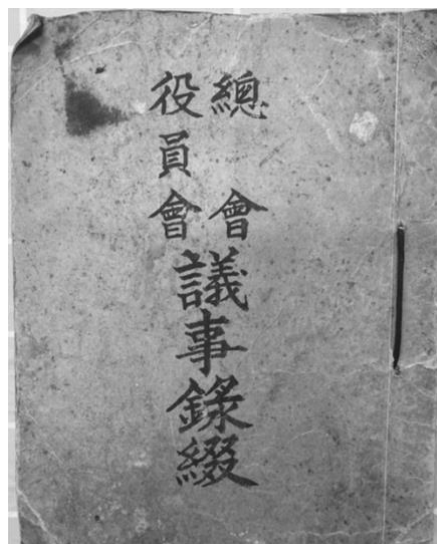 總會
役員會
議事錄綴